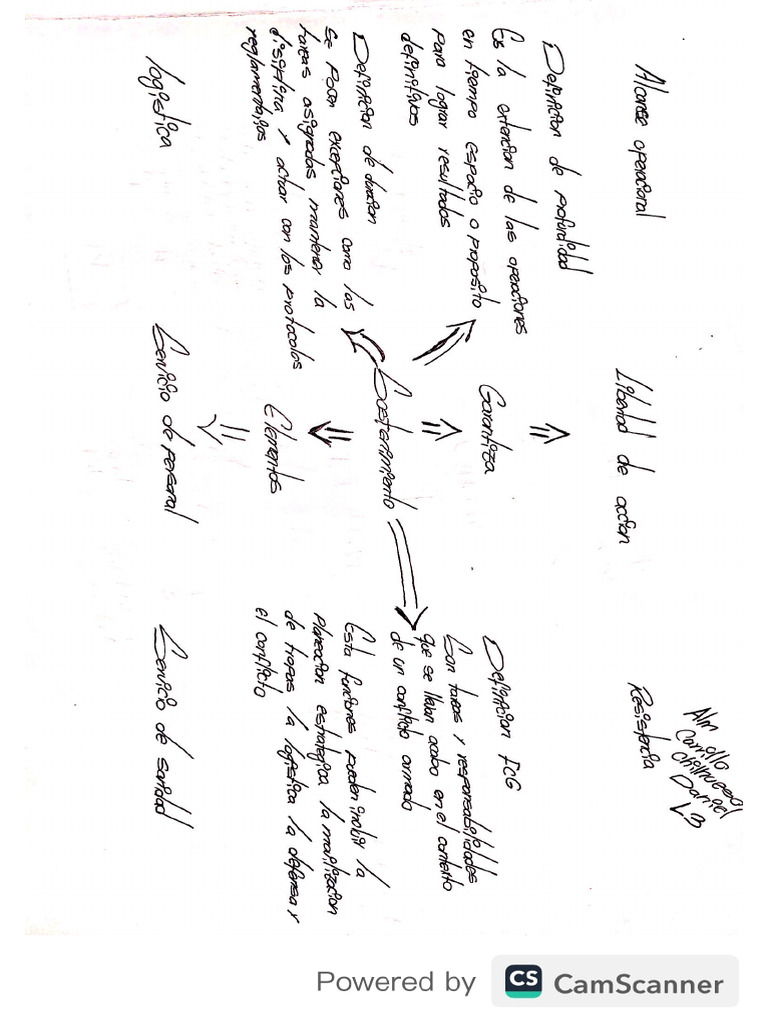 Alcance operacional
Libertad de accion
Resistencia
Alm
Carrillo
Daniel
L3
Definicion de profundidad
Es la extencion de las operaciones
en tiempo espacio o proposito
para lograr resultados
definitivos
Garantiza
Definicion FCG
Son tareas y responsabilidades
que se llevan acabo en el contexto
de un conflicto armado
Esta funciones pueden incluir la
planeacion estrategica la movilizacion
de tropas la logistica la defensa y
el conflicto
Sostenimiento
Definicion de duracion
Se Pocen excepciones como las
tareas asignadas mantener la
disciplina y actuar con los protocolos
reglamentarios
Elementos
logistica
Servicio de personal
Servicio de sanidad
Powered by CS CamScanner